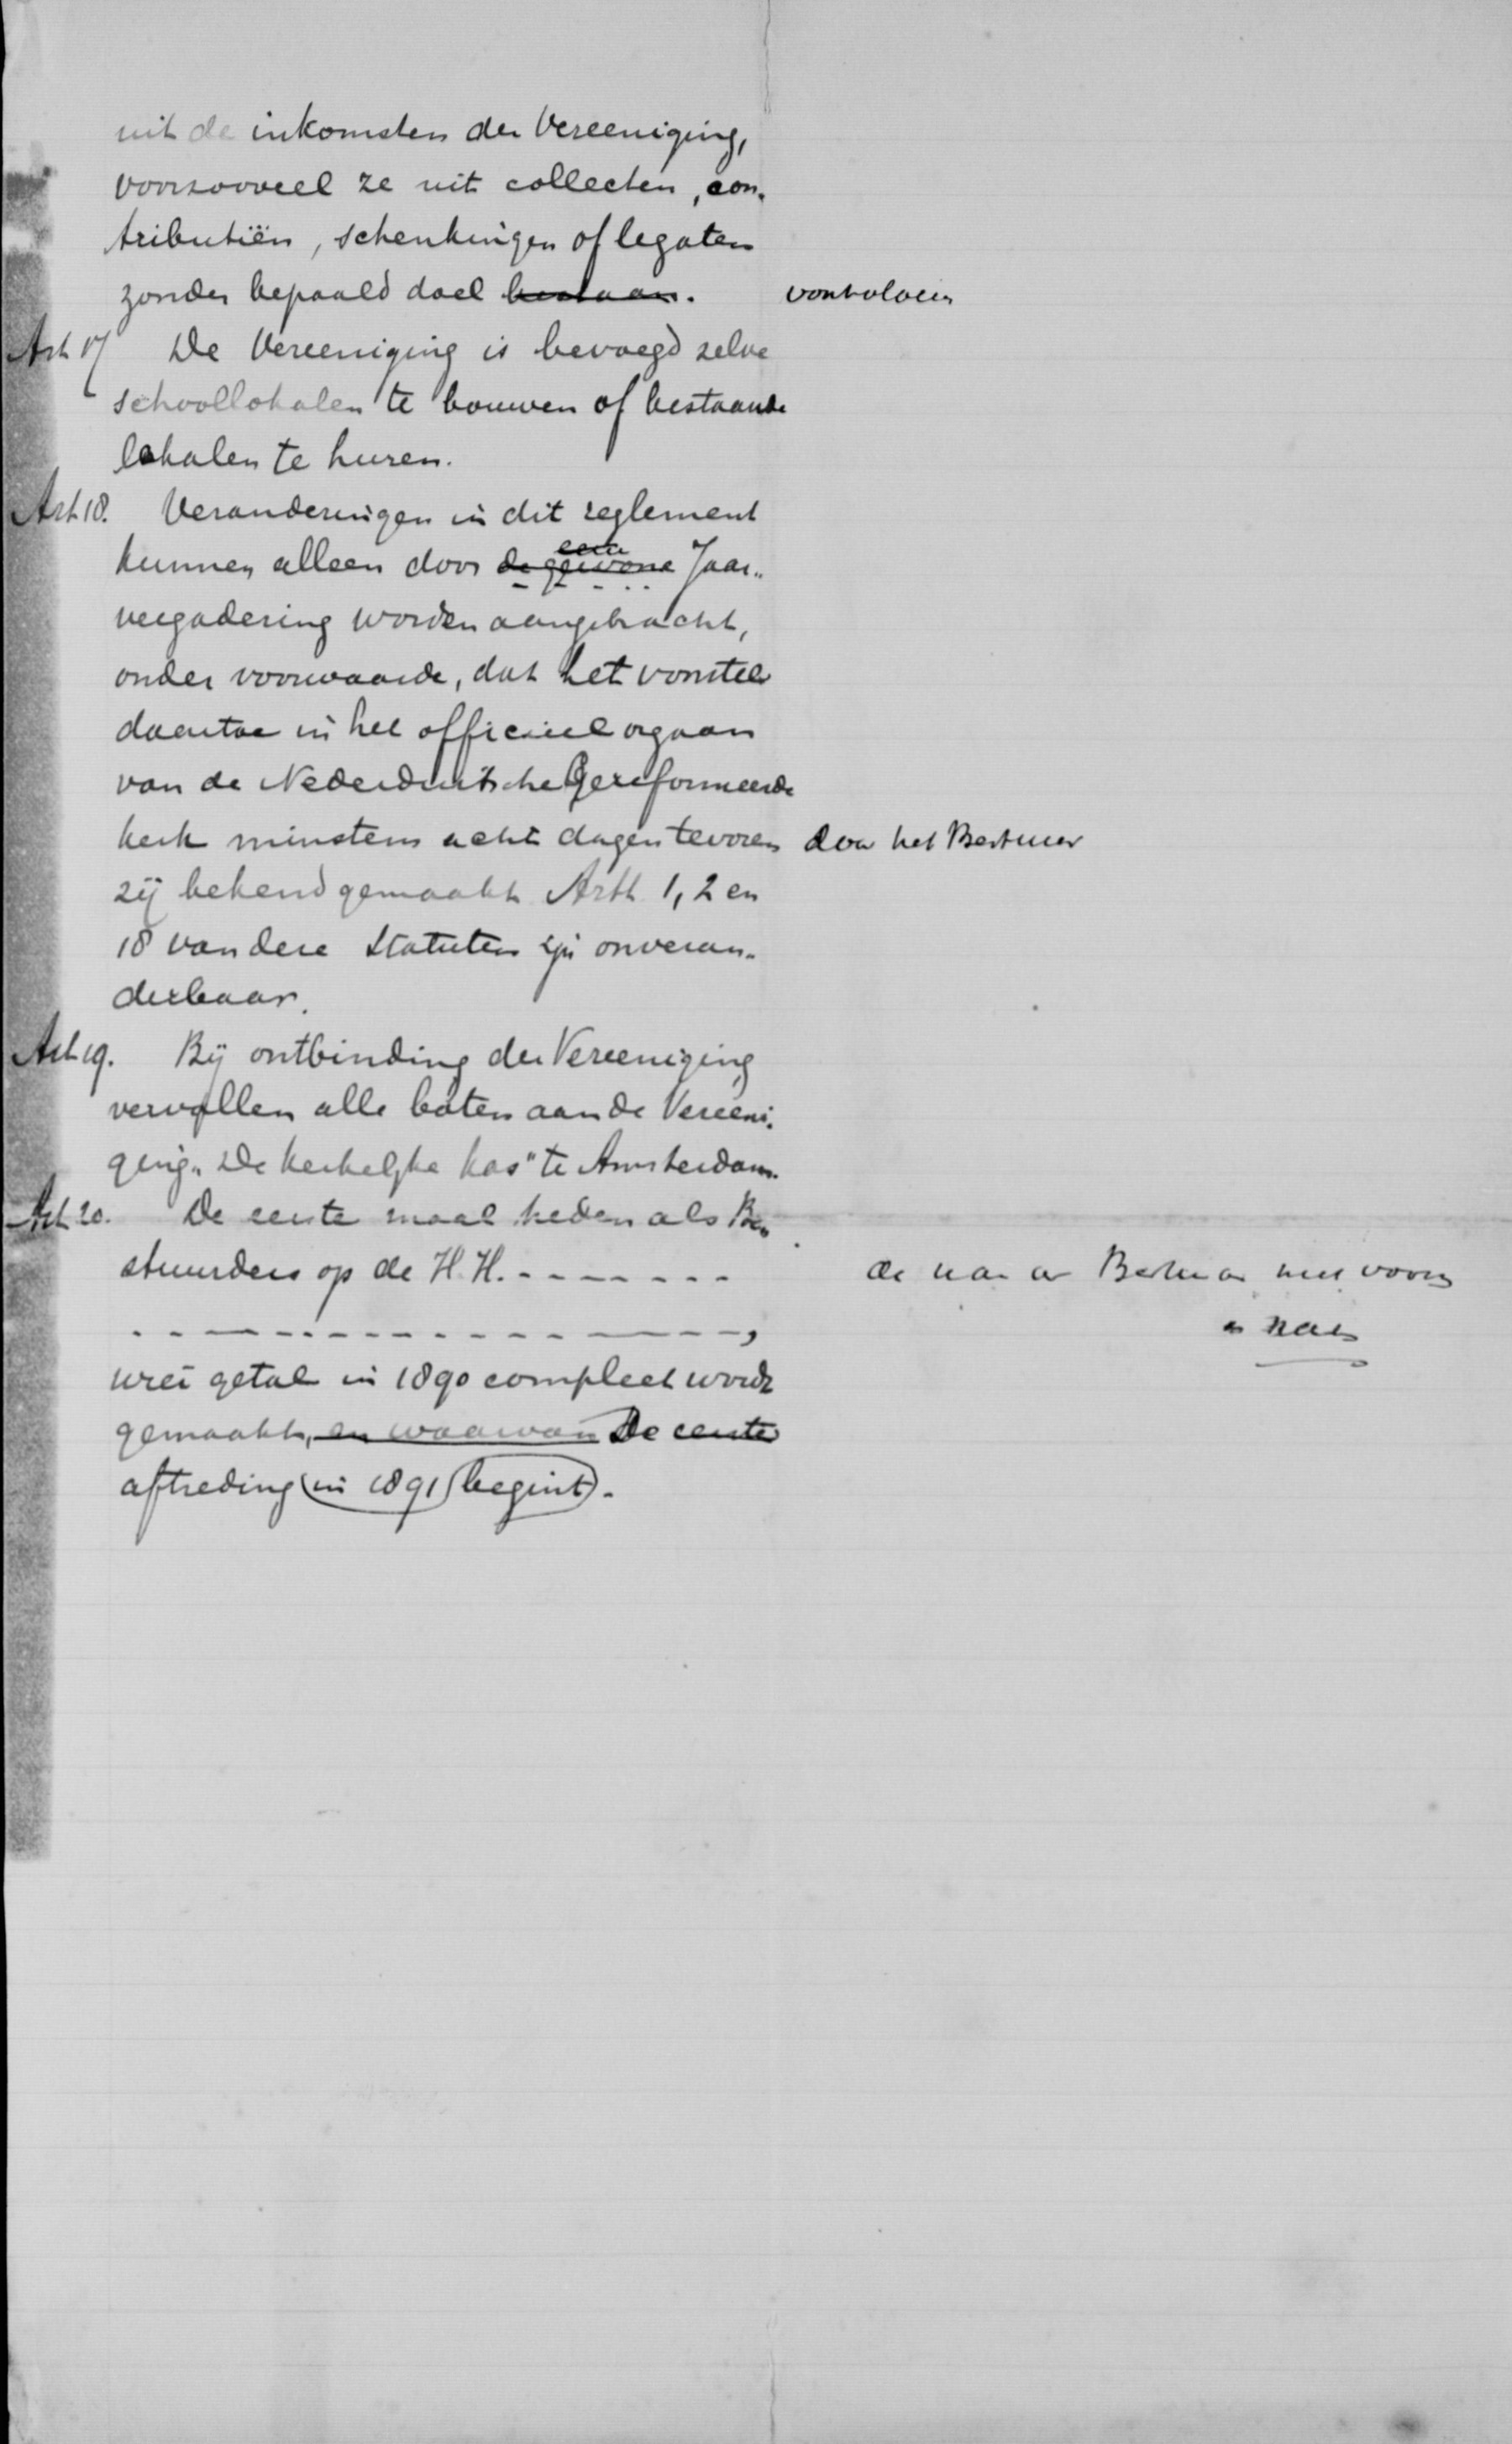 uit de inkomsten der Vereeniging,
voorzooveel ze uit collecten, con-
tributiën, schenkingen of legaten
zonder bepaald doel bestaan. voortvloeien
Art 17 De Vereeniging is bevoegd zelve
schoollokalen te bouwen of bestaande
lokalen te huren.
Art 18. Veranderingen in dit reglement
kunnen alleen door de gewone eene Jaar-
vergadering worden aangebracht,
onder voorwaarde, dat het voorstel
daartoe in het officieel orgaan
van de Nederduitsche Gereformeerde
kerk minstens acht dagen tevoren door het Bestuur
zij bekend gemaakt. Artt. 1, 2 en
18 van deze Statuten zijn onveran-
derbaar.
Art 19. Bij ontbinding der Vereeniging
vervallen alle baten aan de Vereeni-
ging „De kerkelijke kas" te Amsterdam.
Art 20. De eerste maal treden als Be-
stuurders op de H.H. - - - - - - - -
- - - - - - - - - - - - - - -,
wier getal in 1890 compleet wordt
gemaakt, en waarvan De eerste
aftreding in 1891 begint.